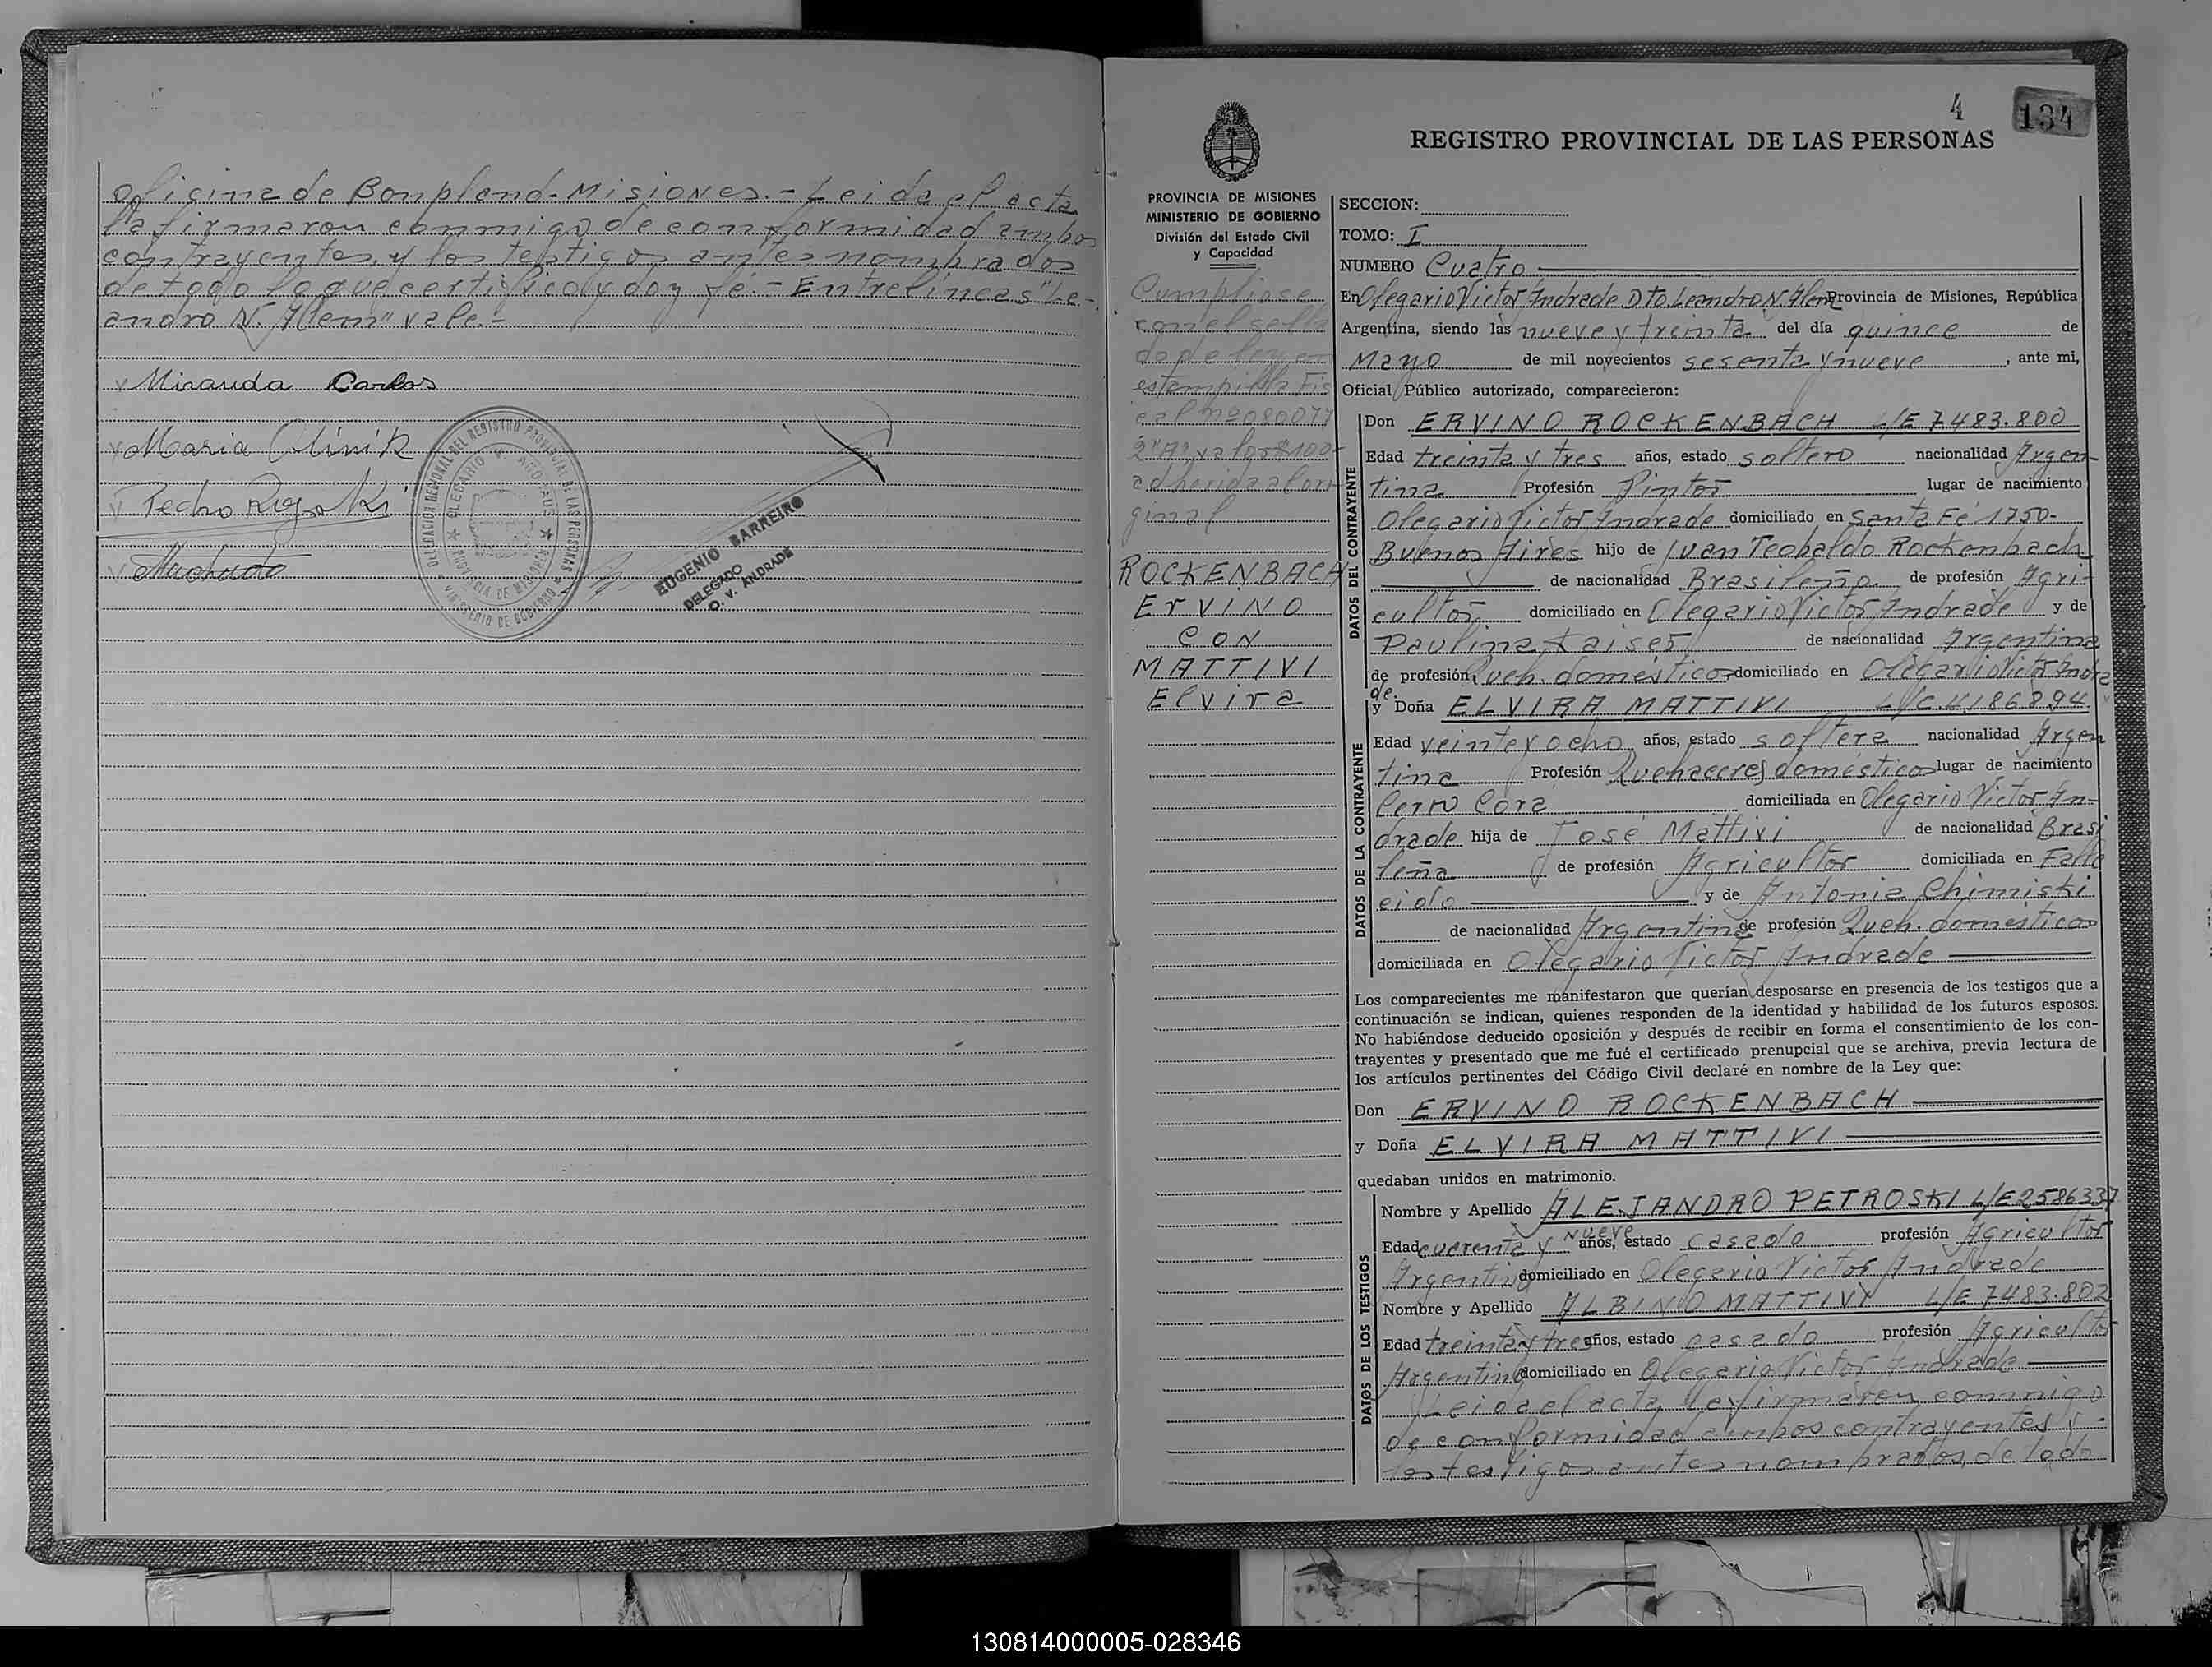 oficina de Bonpland-Misiones.- Leida el acta
la firmaron conmigo de conformidad ambos
contrayentes, y los testigos antes nombrados
de todo lo que certifico y doy fé.- Entrelineas "Le-
andro N. Alem" vale.-
Miranda Carlos
Maria Olinik
Pedro
Machado
DELEGACION REGIONAL DEL REGISTRO PROVINCIAL DE LAS PERSONAS
MINISTERIO DE GOBIERNO
PROVINCIA DE MISIONES
EUGENIO BARREIRO
DELEGADO
O. V. ANDRADE
4
134
REGISTRO PROVINCIAL DE LAS PERSONAS
PROVINCIA DE MISIONES
MINISTERIO DE GOBIERNO
División del Estado Civil
y Capacidad
Cumpliose
con el sella
do de ley en
estampilla Fis
cal nº 080077
"A" valor $ 100-
adherida al ori
ginal
ROCKENBACH
Ervino
CON
MATTIVI
Elvira
SECCION:
TOMO: I
NUMERO Cuatro
En Olegario Victor Andrade Dto Leandro N. Alem Provincia de Misiones, República
Argentina, siendo las nueve y treinta del día quince de
Mayo de mil novecientos sesenta y nueve, ante mi,
Oficial Público autorizado, comparecieron:
DATOS DEL CONTRAYENTE
Don ERVINO ROCKENBACH L/E 7483.800
Edad treinta y tres años, estado soltero nacionalidad Argen-
tina Profesión Pintor lugar de nacimiento
Olegario Victor Andrade domiciliado en Santa Fé 1750-
Buenos Aires hijo de Juan Teobaldo Rockenbach
de nacionalidad Brasileña de profesión Agri-
cultor domiciliado en Olegario Victor Andrade y de
Paulina Kaiser de nacionalidad Argentina
de profesión Queh. domésticos domiciliado en Olegario Victor Andra
de.
DATOS DE LA CONTRAYENTE
y Doña ELVIRA MATTIVI L/C.4.186.894.
Edad veinte y ocho años, estado soltera nacionalidad Argen
tina Profesión Quehaceres domésticos lugar de nacimiento
Cerro Cora domiciliada en Olegario Victor An-
drade hija de José Mattivi de nacionalidad Brasi
leña de profesión Agricultor domiciliada en Falle
cido y de Antonia Chimiski
de nacionalidad Argentina de profesión Queh. domésticos
domiciliada en Olegario Victor Andrade
Los comparecientes me manifestaron que querían desposarse en presencia de los testigos que a
continuación se indican, quienes responden de la identidad y habilidad de los futuros esposos.
No habiéndose deducido oposición y después de recibir en forma el consentimiento de los con-
trayentes y presentado que me fué el certificado prenupcial que se archiva, previa lectura de
los artículos pertinentes del Código Civil declaré en nombre de la Ley que:
Don ERVINO ROCKENBACH
y Doña ELVIRA MATTIVI
quedaban unidos en matrimonio.
DATOS DE LOS TESTIGOS
Nombre y Apellido ALEJANDRO PETROSKI L/E 2586337
Edad cuarenta y nueve años, estado casado profesión Agricultor
Argentino domiciliado en Olegario Victor Andrade
Nombre y Apellido ALBINO MATTIVI L/E 7483.802
Edad treinta y tres años, estado casado profesión Agricultor
Argentino domiciliado en Olegario Victor Andrade
Leida el acta la firmaron conmigo
de conformidad ambos contrayentes y
los testigos antes nombrados, de todo
130814000005-028346